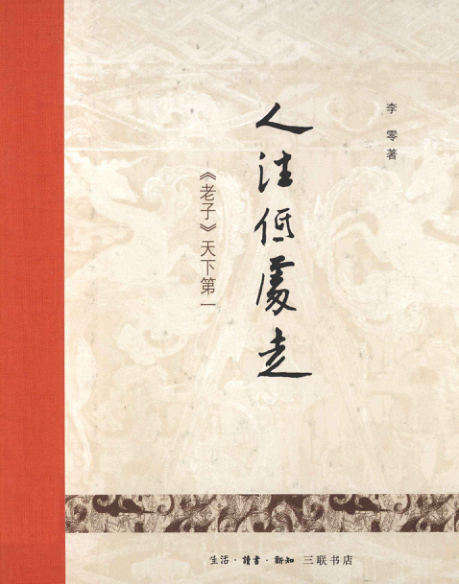 李零著
人往低處走
《老子》天下第一
生活·讀書·新知 三联书店